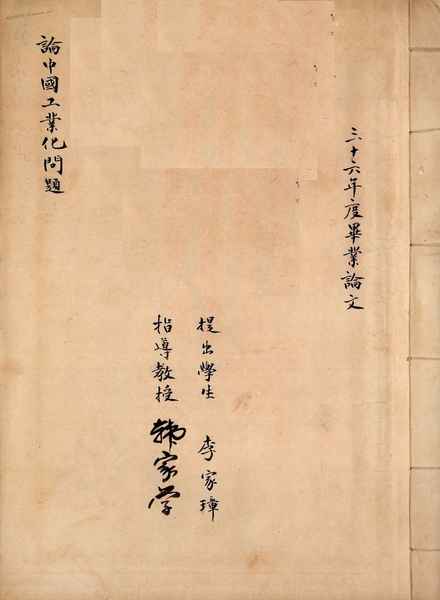 三十六年度畢業論文
提出學生 李家璋
指導教授 韓家学
論中國工業化問題